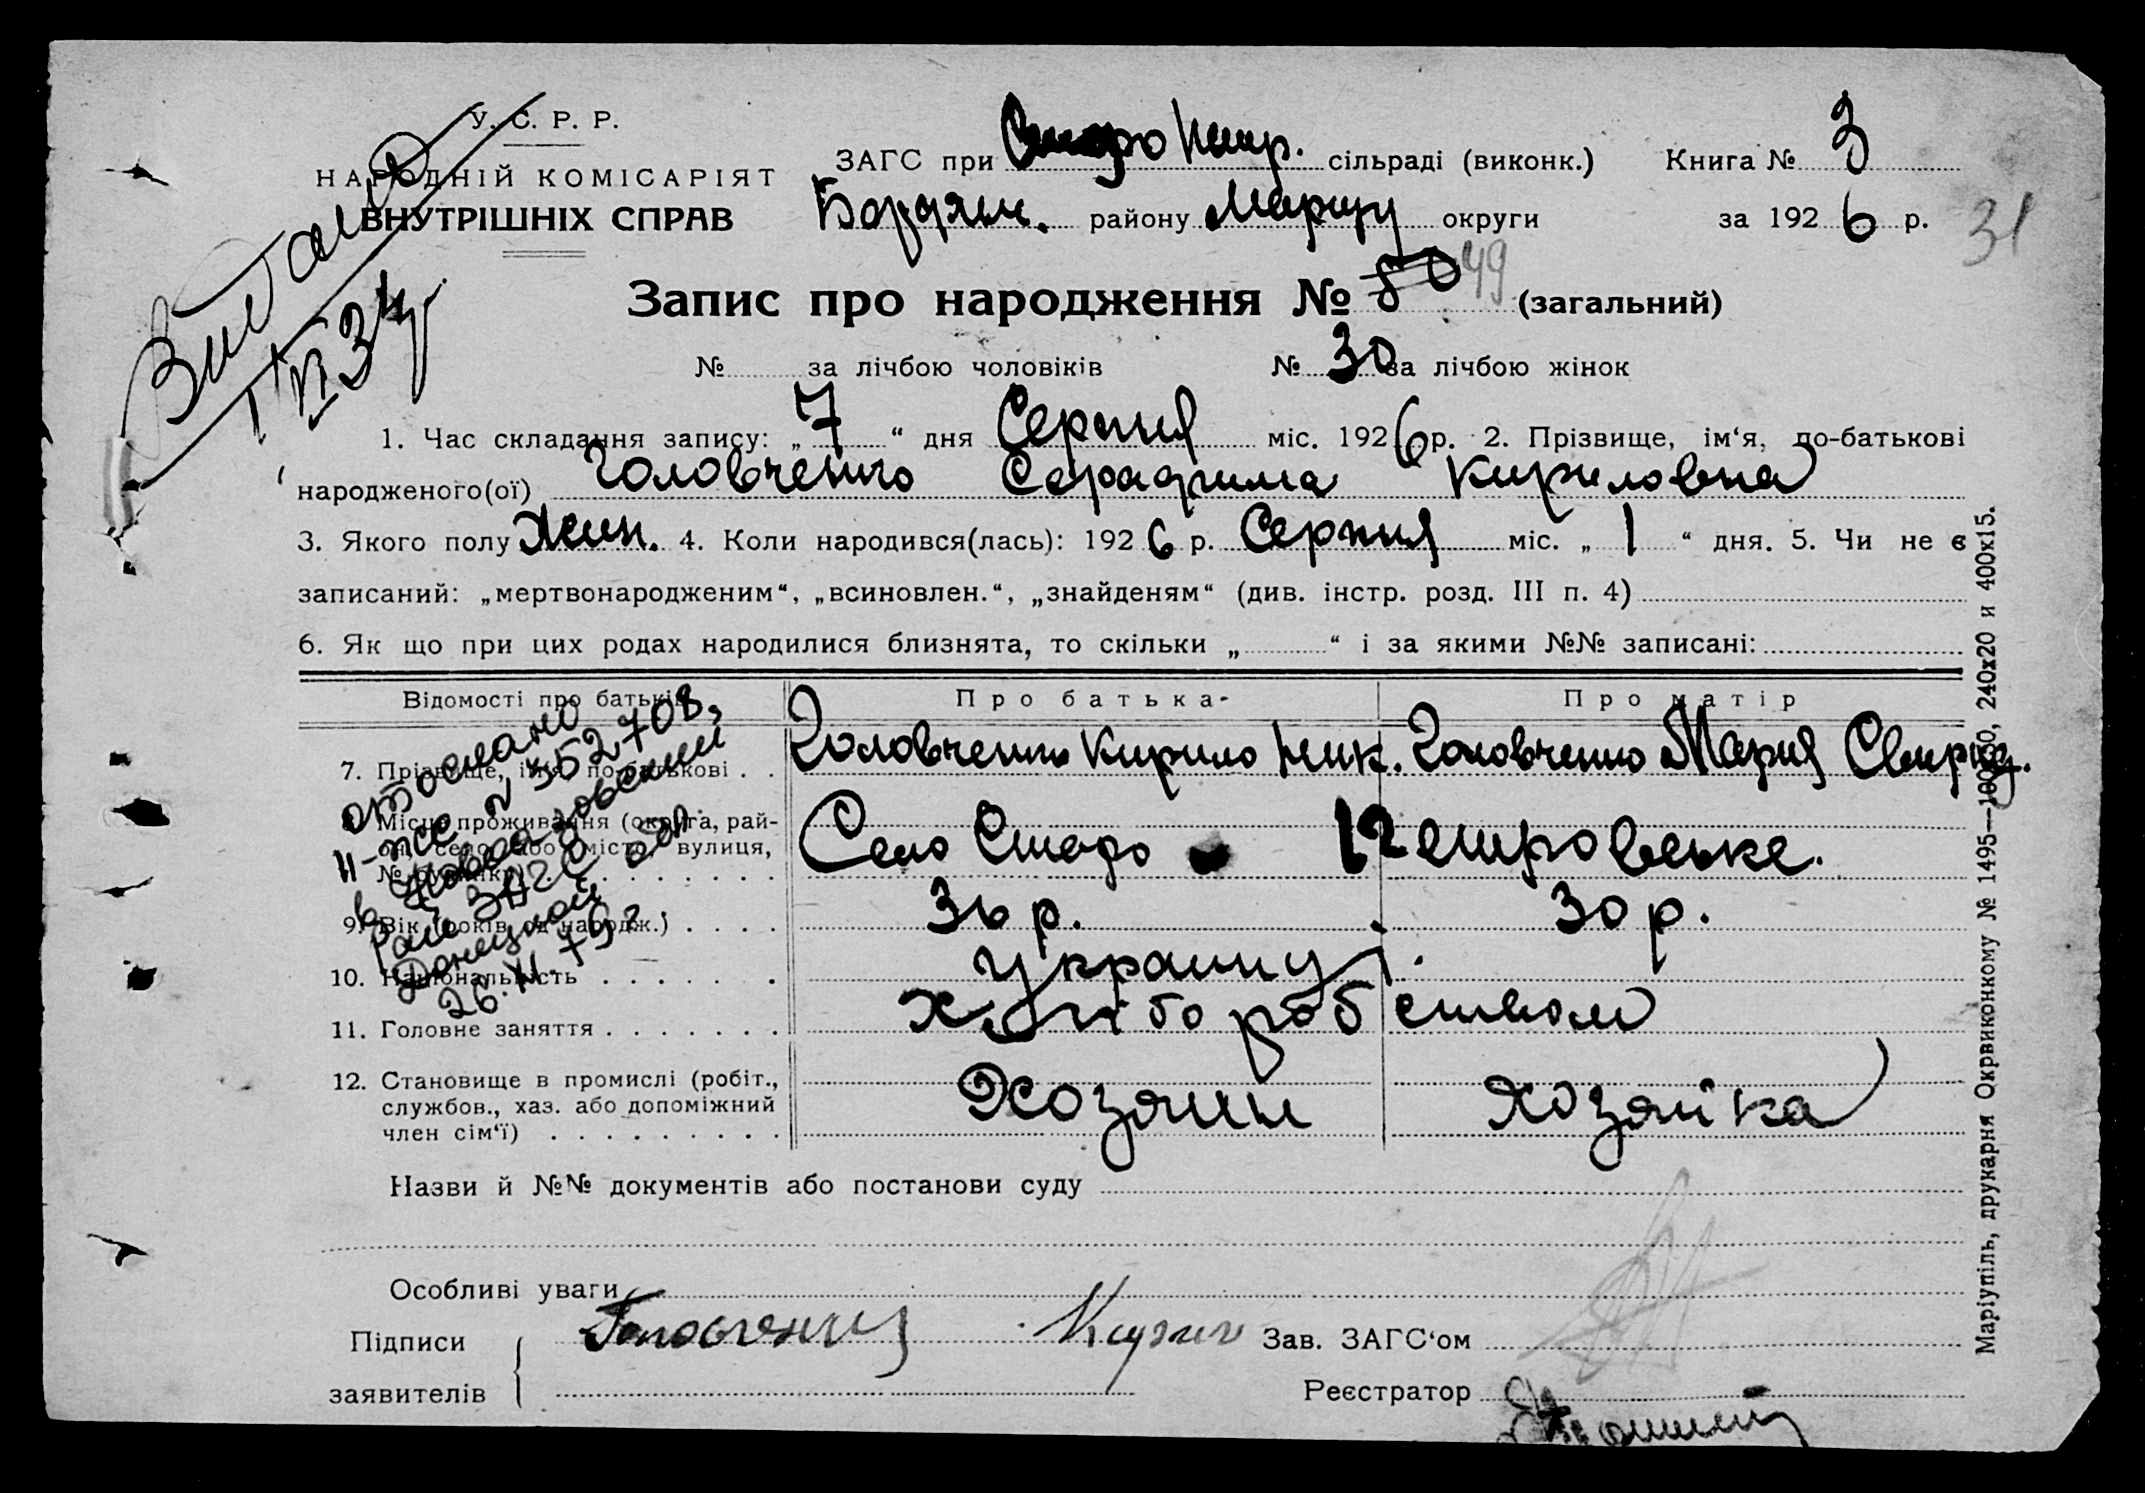 У. С. Р. Р.
НАРОДНІЙ КОМІСАРІЯТ
ВНУТРІШНІХ СПРАВ
Видано
ЗАГС при Старо Петр. сільраді (виконк.) Книга № 3
Бердянс. району Маріуп округи за 1926 р. 31
Запис про народження № 80 49 (загальний)
№ за лічбою чоловіків № 30 за лічбою жінок
1. Час складання запису: „ 7 “ дня Серпня міс. 1926 р. 2. Прізвище, ім‘я, по-батькові
народженого(ої) Головченко Серафима Кириловна
3. Якого полу Жін. 4. Коли народився(лась): 1926 р. Серпня міс. „ 1 “ дня. 5. Чи не є
записаний: „мертвонародженим“, „всиновлен.“, „знайденям“ (див. інстр. розд. III п. 4)
6. Як що при цих родах народилися близнята, то скільки „ “ і за якими №№ записані:
Відомості про батьків Про батька- Про матір
7. Прізвище, ім‘я, по-батькові . . Головченко Кирило Ник. Головченко Мария Свирид.
8. Місце проживання (округа, рай-
он, село, або місто, вулиця,
№ будинку) . . . . . . . . Село Старо Петровське.
9. Вік (років од народж.) . . . . 36 р. 30 р.
10. Національність . . . . . . Українці
11. Головне заняття . . . . . . . Хліборобством
12. Становище в промислі (робіт.,
службов., хаз. або допоміжний
член сім‘ї) . . . . . . . . . Хозяин Хозяйка
отослано
н-ж № 352708,
ЗАГС
Донецкой обл
26. XI. 79 г.
Назви й №№ документів або постанови суду
Особливі уваги
Підписи Головченко Зав. ЗАГС‘ом
заявителів Реєстратор
Маріупіль, друкарня Окрвиконкому № 1495—10000, 240х20 и 400х15.